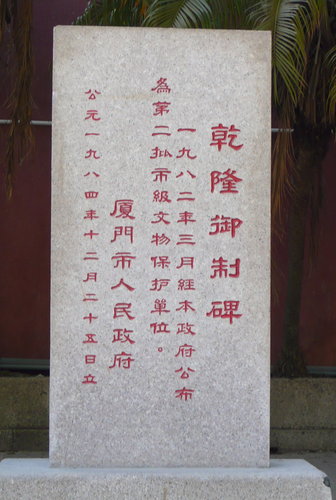 乾隆御制碑
一九八二年三月経本政府公布
為第二批市級文物保护單位。
厦門市人民政府
公元一九八四年十二月二十五日立